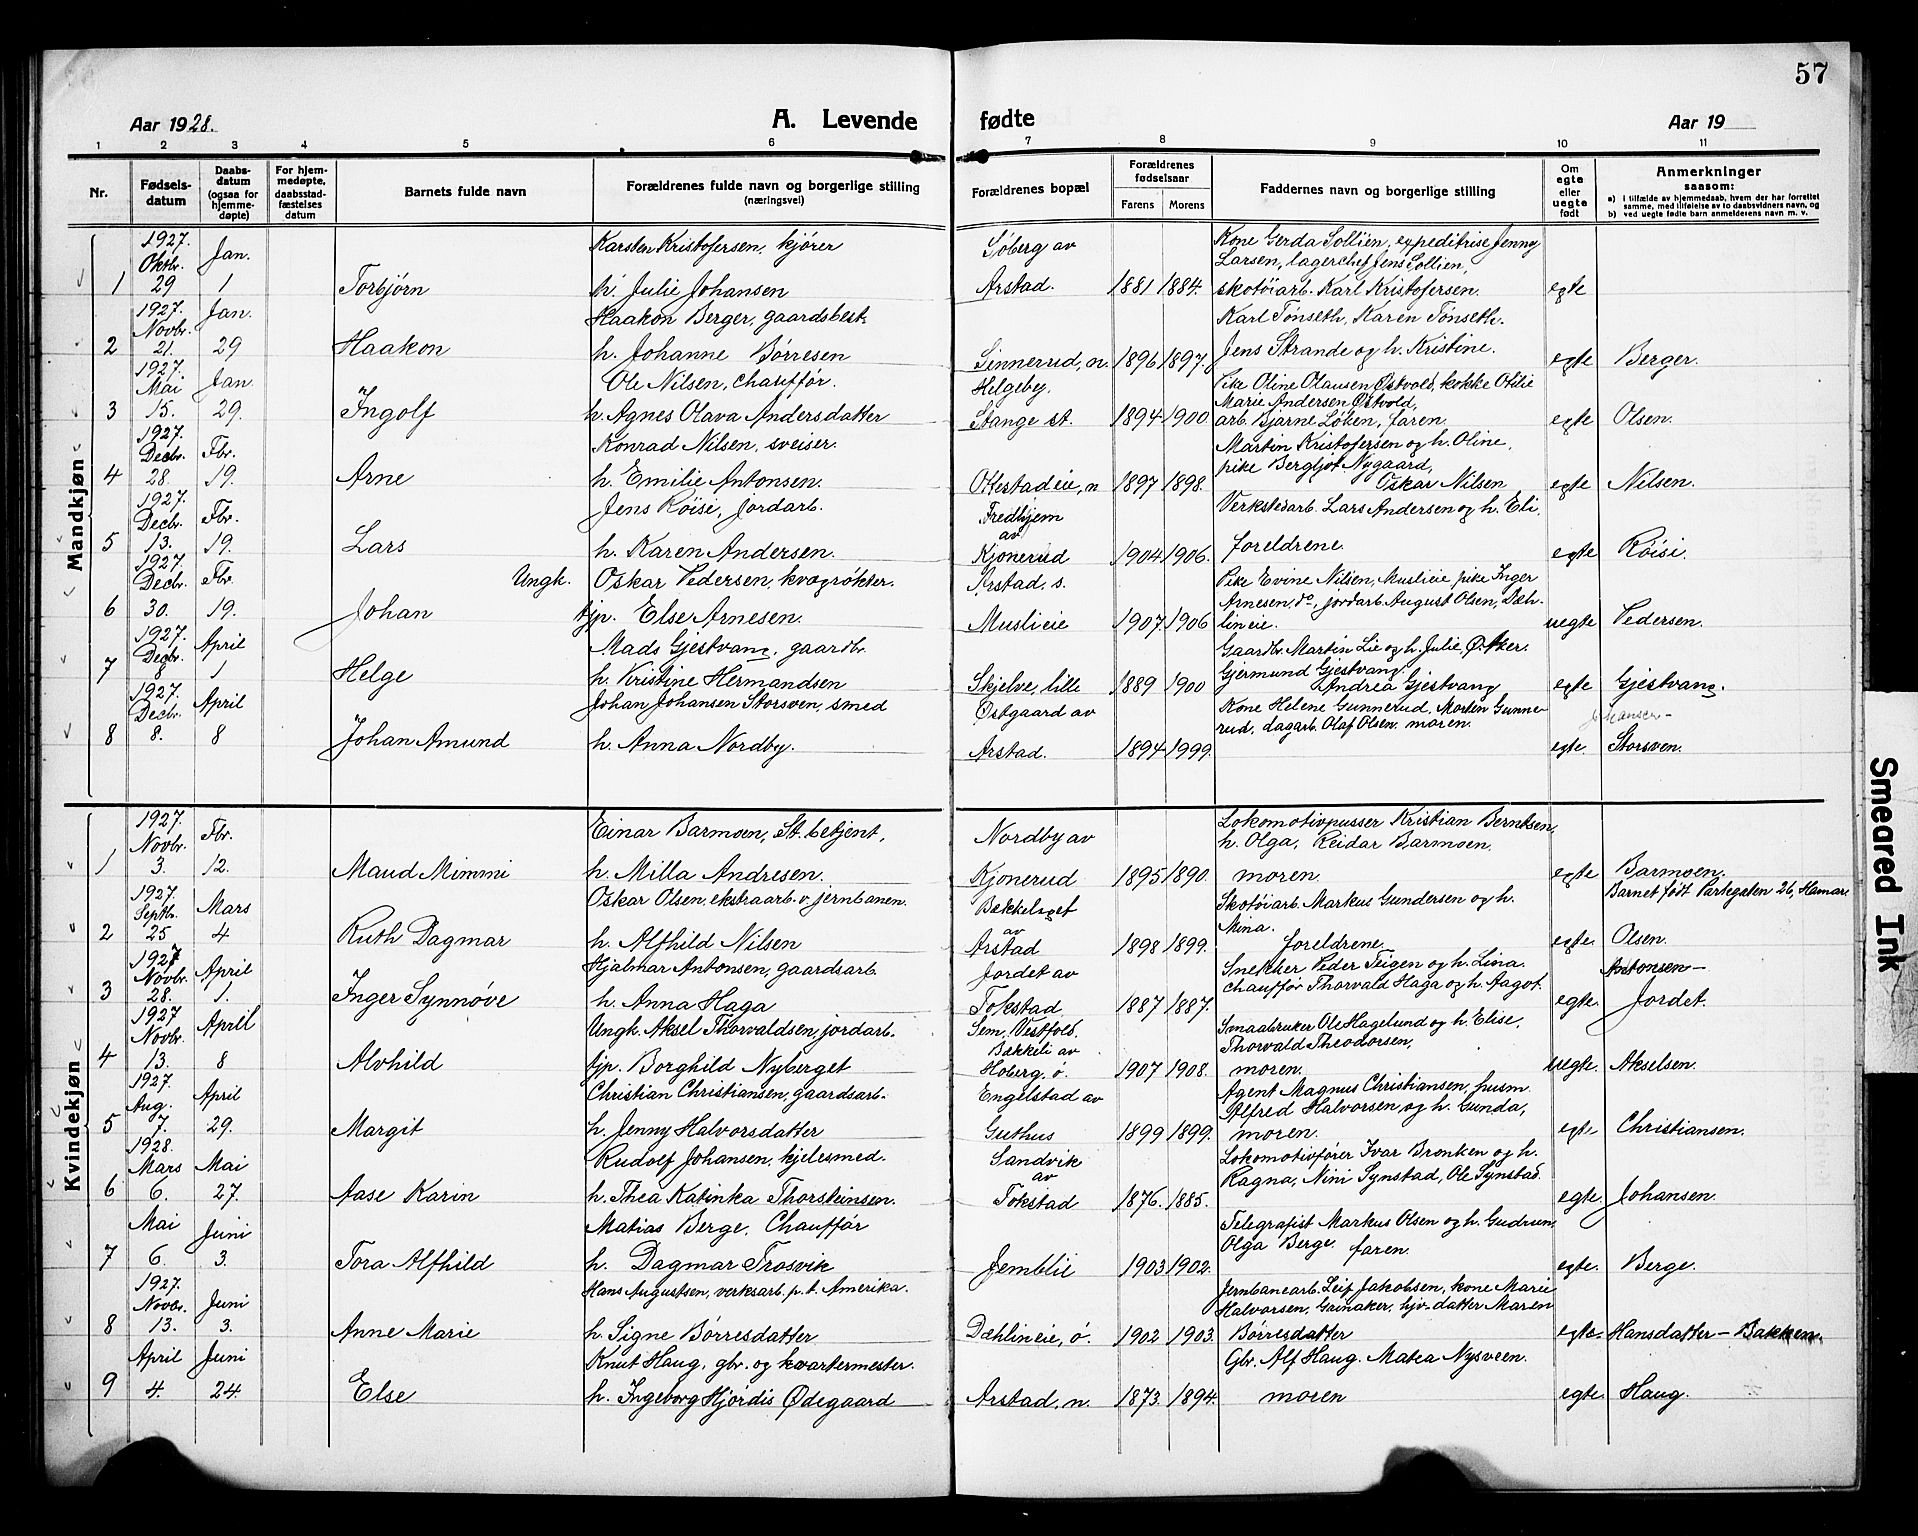 57
Aar 1928.
A. Levende fødte
Aar 19
1 2 3 4 5 6 7 8 9 10 11
Nr.
Fødsels-datum
Daabs-datum (ogsaa for hjemme-døpte)
For hjem-medøpte, daabsstad-fæstelses datum
Barnets fulde navn
Forældrenes fulde navn og borgerlige stilling (næringsvei)
Forældrenes bopæl
Forældrenes fødselsaar
Farens Morens
Faddernes navn og borgerlige stilling
Om egte eller uegte født
Anmerkninger saasom:
a) I tilfælde av hjemmedaab, hvem der har forrettet samme, med tilføielse av to daabsvidners navn, og
b) ved uegte fødte barn anmelderens navn m. v.
Mandkjøn
1927. Oktbr. Jan. Karsten Kristofersen, kjører Søberg av Kone Gerda Sollien, expeditrise Jenny
Larsen, lagerchef Jens Sollien,
1 29 1 Torbjørn h. Julie Johansen Arstad. 1881 1884. skotøiarb. Karl Kristofersen. egte
1927. Novbr. Jan. Haakon Berger, gaardsbest. Karl Tønseth, Karen Tønseth.
2 21. 29 Haakon h. Johanne Børresen Sinnerud, n. 1896 1897. Jens Strande og h. Kristine. egte Berger.
1927. Mai Jan. Ole Nilsen, chauffør. Helgeby. Pike Oline Olausen Østvold, kokke Otilie
Marie Andersen Østvold,
3 15. 29. Ingolf h. Agnes Olava Andersdatter Stange st. 1894 1900 arb. Bjarne Løken, faren. egte Olsen.
1927. Decbr. Fbr. Konrad Nilsen, sveiser. Martin Kristofersen og h. Oline,
pike Bergljot Nygaard,
4 28. 19. Arne h. Emilie Antonsen. Ottestadeie, n 1897 1898. Oskar Nilsen egte Nilsen.
1927. Decbr. Fbr. Jens Røise, Jordarb. Fredhjem av Verkstedarb. Lars Andersen og h. Eli,
5 13. 19. Lars h. Karen Andersen. Kjonerud 1904 1906. foreldrene. egte Røisi.
1927. Decbr. Fbr. Ungk. Oskar Pedersen, kvægrøkter. Arstad. s. Pike Evine Nilsen, Muslieie pike Inger
Arnesen, do, jordarb. August Olsen, Dæh-
6 30. 19. Johan pp. Else Arnesen. Muslieie 1907. 1906 lineie. uegte Pedersen.
1927. Decbr. April Mads Gjestvang, gaardbr. Gaardbr. Martin Lie og h. Julie, Ø. Aker.
Gjermund Gjestvang,
7 8 1 Helge h. Kristine Hermandsen Skjelve, lille 1889 1900 Andrea Gjestvang egte Gjestvang.
1927. Decbr. April Johan Johansen Storsven, smed Østgaard av Kone Helene Gunnerud, Morten Gunne-
rud, dagarb. Olaf Olsen. moren. Johansen-
8 8. 8 Johan Amund h. Anna Nordby. Arstad. 1894 1999. egte. Storsven.
Kvindekjøn
1927. Novbr. Fbr. Einar Barmoen, St. betjent, Nordby av Lokomotivpusser Kristian Berntsen,
h. Olga, Reidar Barmoen.
1 3. 12. Maud Mimmi h. Milla Andresen. Kjonerud 1895 1890. moren. egte Barmoen.
1927. Septbr. Mars Oskar Olsen, ekstraarb. v. jernbanen. Bækkelaget av Skotøiarb. Markus Gundersen og h. Barnet født Parkgaten 26, Hamar.
Mina.
2 25 4 Ruth Dagmar h. Alfhild Nilsen Arstad 1898 1899. foreldrene. egte. Olsen.
1927 Novbr. April Hjalmar Antonsen, gaardsarb. Jordet av Snekker Peder Teigen og h. Lina. Antonsen-
chauffør Thorvald Haga og h. Aagot.
3 28. 1. Inger Synnøve h. Anna Haga Tokstad. 1887 1887. egte. Jordet.
1927 Novbr. April Ungk. Aksel Thorvaldsen, jordarb. Sem, Vestfold. Smaabruker Ole Hagelund og h. Elise,
Bækkeli av Thorvald Theodorsen,
4 13. 8 Alvhild pp. Borghild Nyberget Hoberg. ø. 1907 1908. moren. uegte. Akselsen.
1927. Aug. April Christian Christiansen, gaardsarb. Engelstad av Agent Magnus Christiansen, husm.
Alfred Halvorsen, og h. Gunda,
5 7. 29. Margit h. Jenny Halvorsdatter Guthus 1899 1899. moren. egte Christiansen.
1928. Mars Mai Rudolf Johansen, kjelesmed. Sandvik av Lokomotivfører Ivar Bronken og h.
Ragna, Nini Synstad, Ole Synstad.
6 6. 27. Aase Karin h. Thea Katinka Thorsteinsen. Tokstad 1876. 1885. egte. Johansen.
Mai Juni Matias Berge, Chauffør Telegrafist Markus Olsen og h. Gudrun,
Olga Berge. faren.
7 6. 3. Tora Alfhild h. Dagmar Trosvik Jemblie 1903 1902. egte. Berge.
1927. Novbr. Juni Hans Augustsen, verksarb. p.t. Amerika. Jernbanearb. Leif Jakobsen, kone Marie
Halvorsen, Gainaker, hjv. datter Maren
8 13. 3. Anne Marie h. Signe Børresdatter Dæhlineie, ø. 1902 1903. Børresdatter egte. Hansdatter - Bakken.
April Juni Knut Haug, gbr. og kvartermester. Gbr. Alf Haug. Matea Nysveen.
9 4. 24. Else h. Ingeborg Hjørdis Ødegaard Arstad, n. 1873. 1894. moren egte. Haug.
Smeared Ink